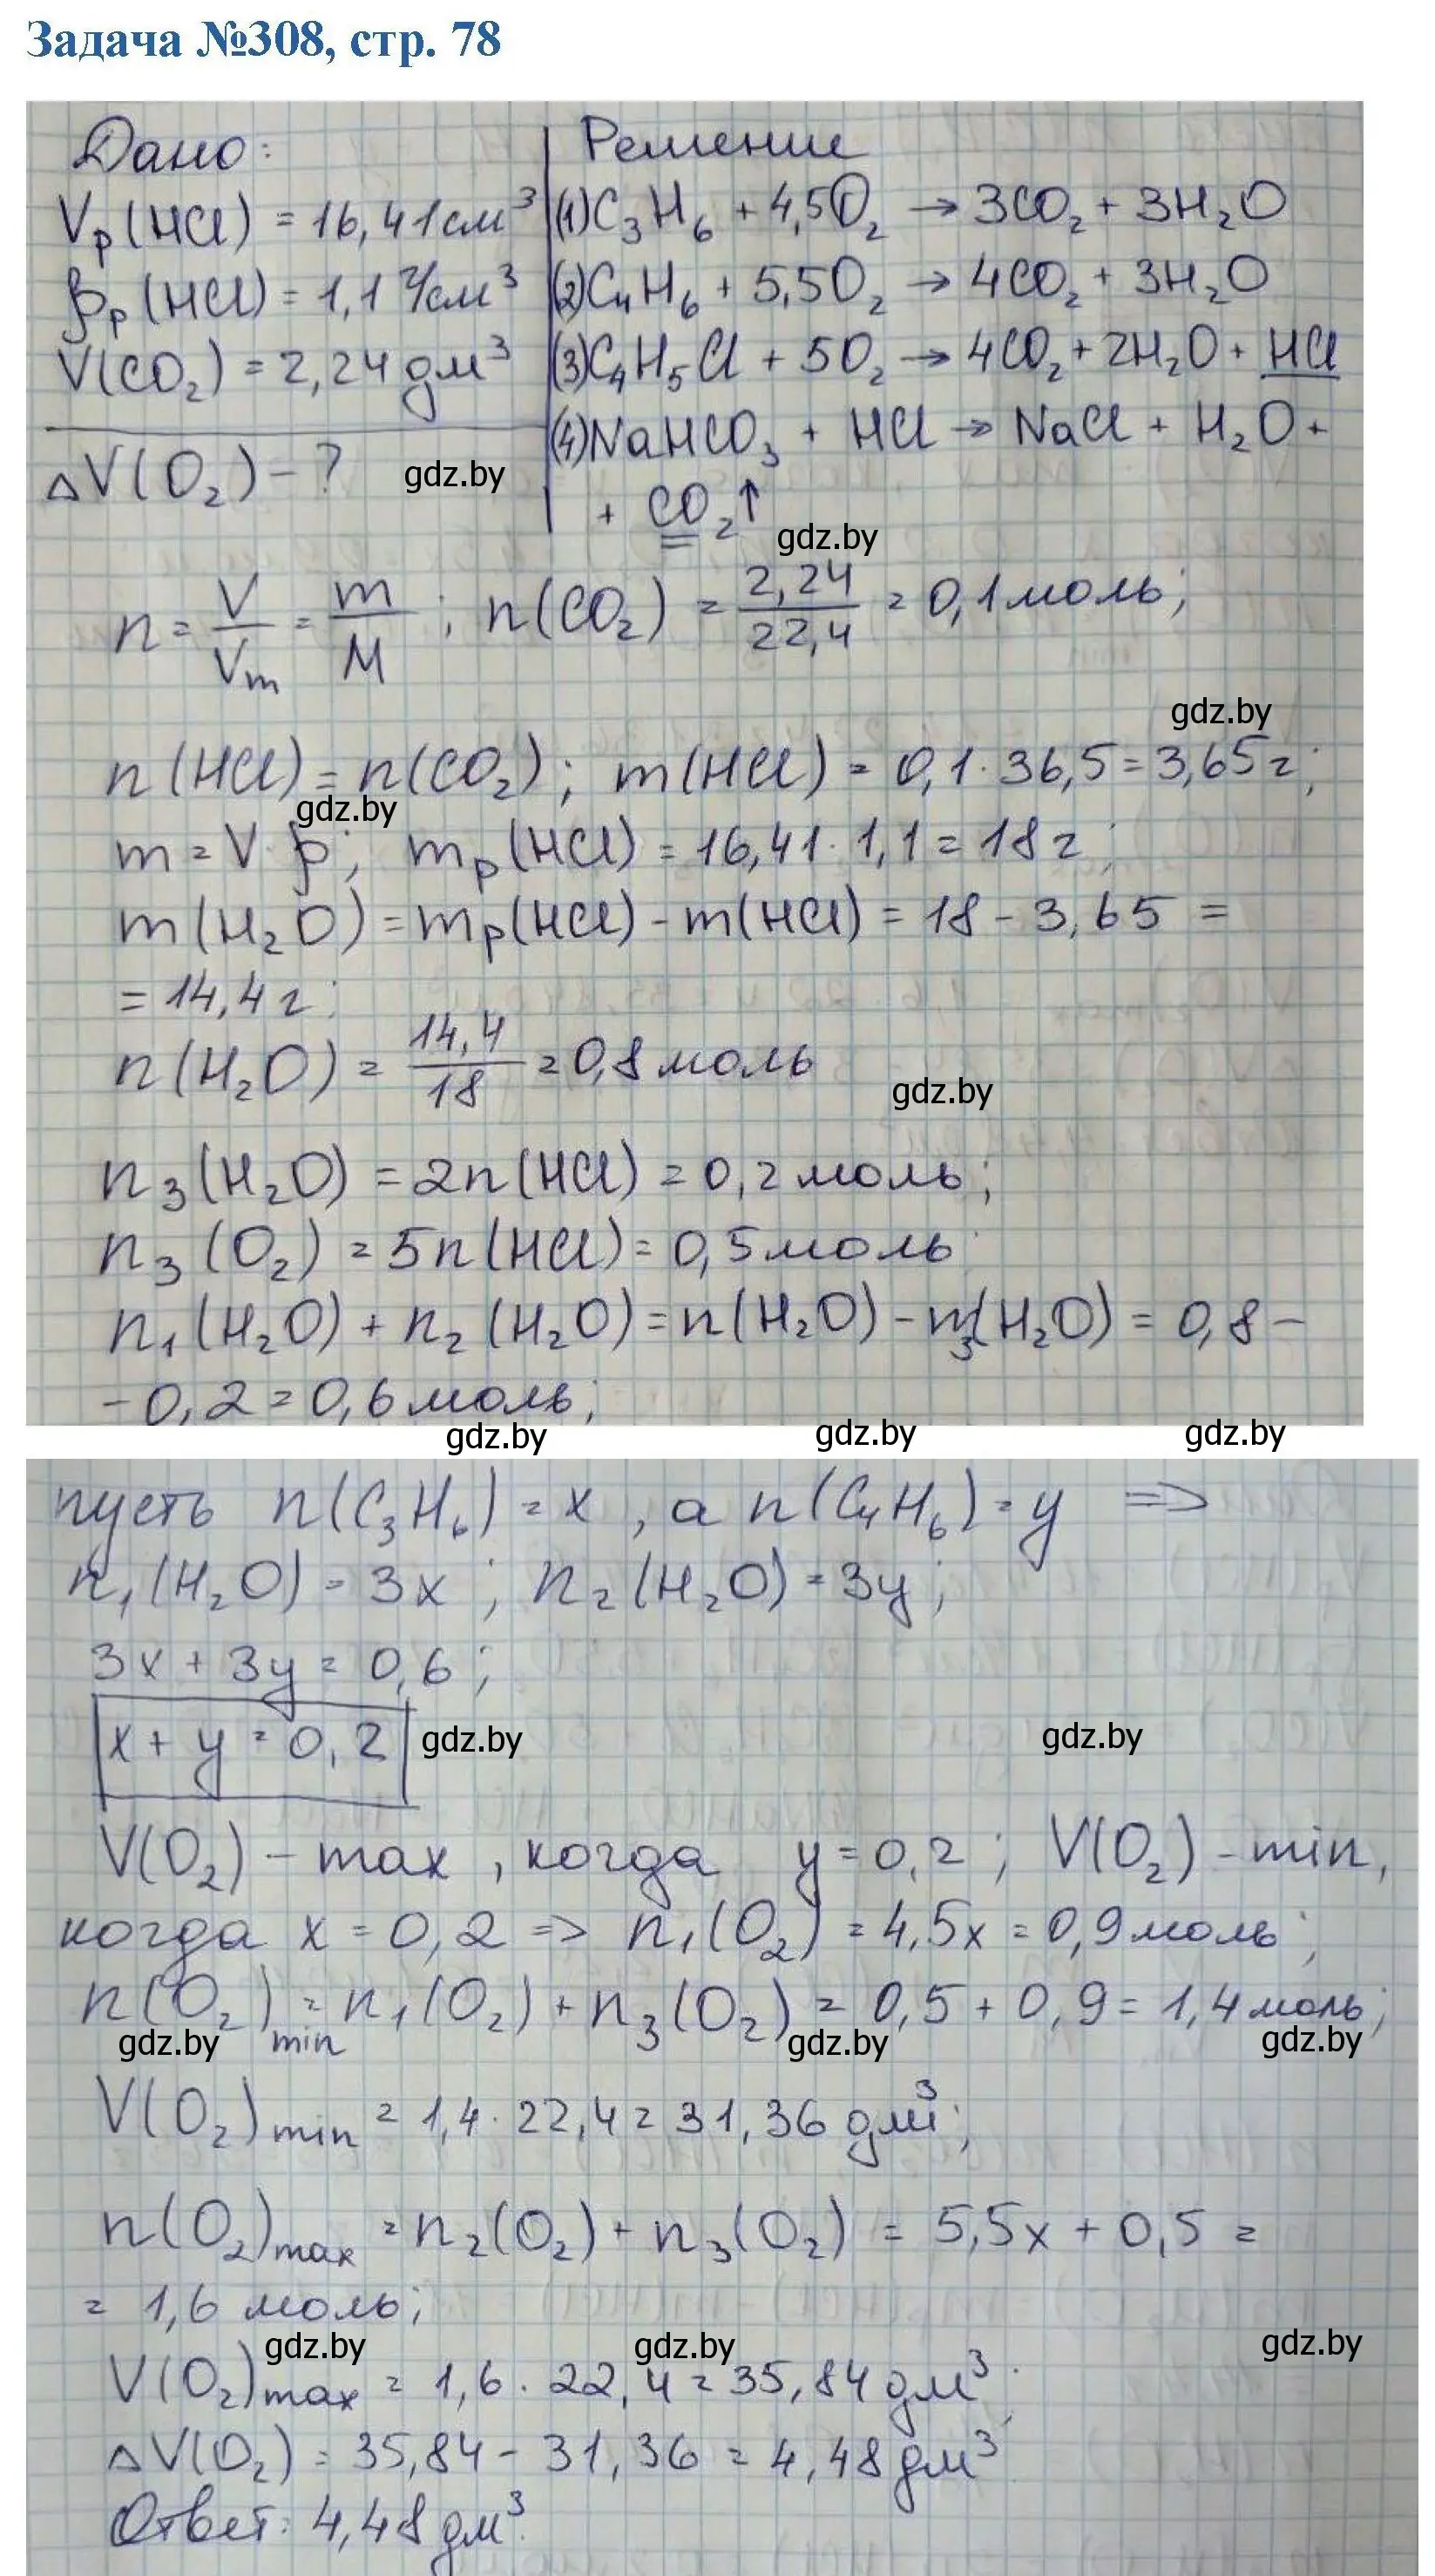 Задача №308, стр. 78
Дано:
Vр(HCl) = 16,41 см³
ρр(HCl) = 1,1 г/см³
V(CO₂) = 2,24 дм³
ΔV(O₂) - ?
gdz.by
Решение
(1) C₃H₆ + 4,5O₂ → 3CO₂ + 3H₂O
(2) C₄H₆ + 5,5O₂ → 4CO₂ + 3H₂O
(3) C₄H₅Cl + 5O₂ → 4CO₂ + 2H₂O + HCl
(4) NaHCO₃ + HCl → NaCl + H₂O +
+ CO₂↑
gdz.by
n = V/Vm = m/M ; n(CO₂) = 2,24/22,4 = 0,1 моль;
gdz.by
n(HCl) = n(CO₂); m(HCl) = 0,1 · 36,5 = 3,65 г;
gdz.by
m = V · ρ; mр(HCl) = 16,41 · 1,1 = 18 г;
m(H₂O) = mр(HCl) - m(HCl) = 18 - 3,65 =
= 14,4 г;
n(H₂O) = 14,4/18 = 0,8 моль
gdz.by
n₃(H₂O) = 2n(HCl) = 0,2 моль;
n₃(O₂) = 5n(HCl) = 0,5 моль
n₁(H₂O) + n₂(H₂O) = n(H₂O) - n₃(H₂O) = 0,8 -
- 0,2 = 0,6 моль;
gdz.by gdz.by gdz.by
пусть n(C₃H₆) = x, а n(C₄H₆) = y =>
n₁(H₂O) = 3x; n₂(H₂O) = 3y;
3x + 3y = 0,6;
x + y = 0,2 gdz.by gdz.by
V(O₂) - max, когда y = 0,2; V(O₂) - min,
когда x = 0,2 => n₁(O₂) = 4,5x = 0,9 моль;
n(O₂)min = n₁(O₂) + n₃(O₂) = 0,5 + 0,9 = 1,4 моль;
gdz.by gdz.by gdz.by
V(O₂)min = 1,4 · 22,4 = 31,36 дм³;
n(O₂)max = n₂(O₂) + n₃(O₂) = 5,5x + 0,5 =
= 1,6 моль;
gdz.by gdz.by gdz.by
V(O₂)max = 1,6 · 22,4 = 35,84 дм³;
ΔV(O₂) = 35,84 - 31,36 = 4,48 дм³
Ответ: 4,48 дм³.